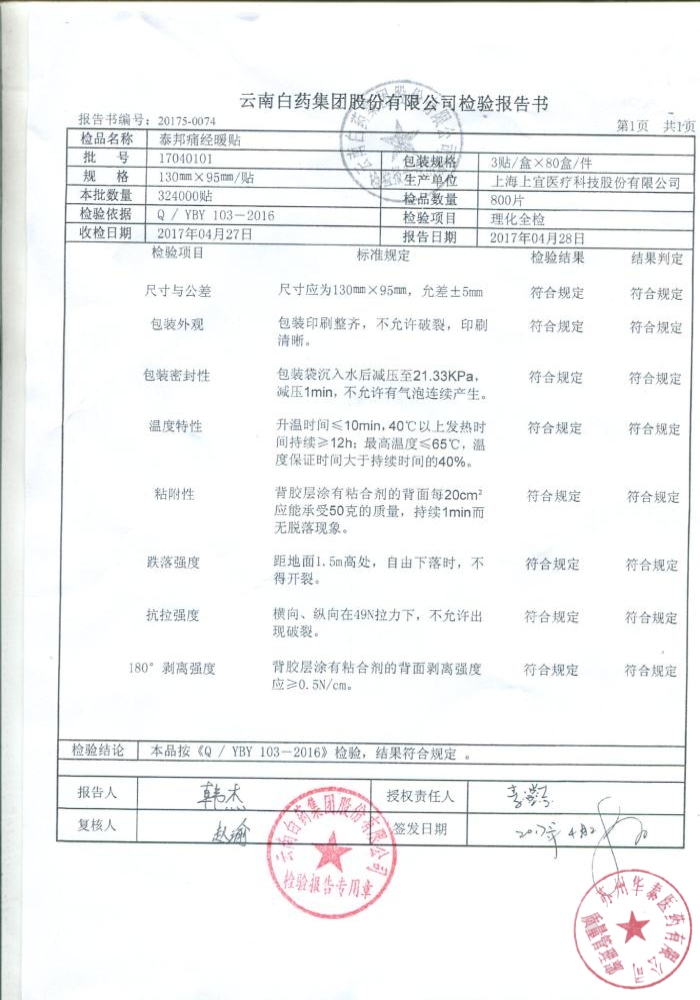 云南白药集团股份有限公司检验报告书
报告书编号：20175-0074 第1页 共1页
检品名称 泰邦痛经暖贴
批 号 17040101 包装规格 3贴/盒×80盒/件
规 格 130mm×95mm/贴 生产单位 上海上宜医疗科技股份有限公司
本批数量 324000贴 检品数量 800片
检验依据 Q / YBY 103-2016 检验项目 理化全检
收检日期 2017年04月27日 报告日期 2017年04月28日
检验项目 标准规定 检验结果 结果判定
尺寸与公差 尺寸应为130mm×95mm，允差±5mm 符合规定 符合规定
包装外观 包装印刷整齐，不允许破裂，印刷 符合规定 符合规定
清晰。
包装密封性 包装袋沉入水后减压至21.33KPa， 符合规定 符合规定
减压1min，不允许有气泡连续产生。
温度特性 升温时间≤10min，40℃以上发热时 符合规定 符合规定
间持续≥12h；最高温度≤65℃，温
度保证时间大于持续时间的40%。
粘附性 背胶层涂有粘合剂的背面每20cm² 符合规定 符合规定
应能承受50克的质量，持续1min而
无脱落现象。
跌落强度 距地面1.5m高处，自由下落时，不 符合规定 符合规定
得开裂。
抗拉强度 横向、纵向在49N拉力下，不允许出 符合规定 符合规定
现破裂。
180°剥离强度 背胶层涂有粘合剂的背面剥离强度 符合规定 符合规定
应≥0.5N/cm。
检验结论 本品按《Q / YBY 103-2016》检验，结果符合规定 。
报告人 韩杰 授权责任人
复核人 赵瑜 签发日期 2017年4月2
云南白药集团股份有限公司
检验报告专用章
苏州华泰医药有限公司
质量管理部